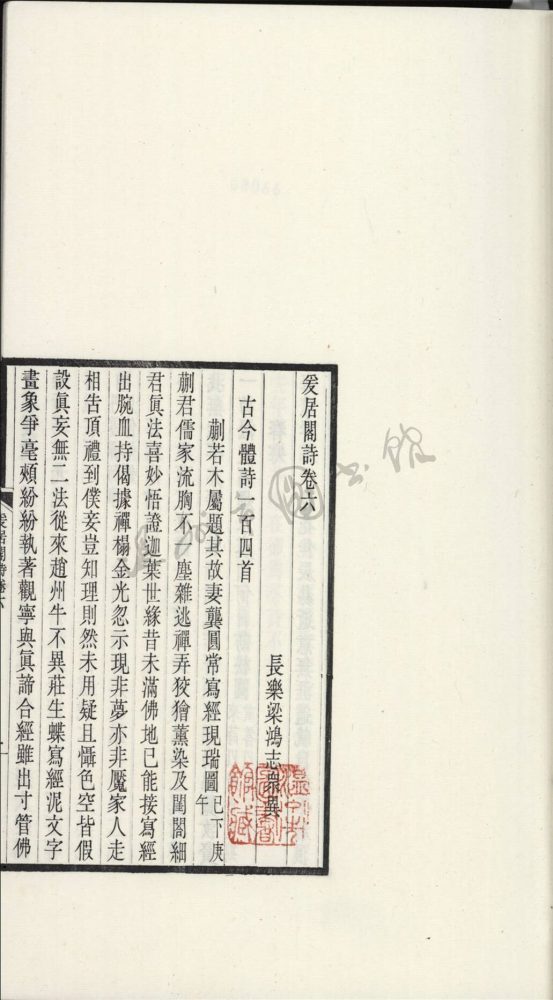 爰居閣詩卷六
長樂梁鴻志衆異
古今體詩一百四首
蒯若木屬題其故妻龔圓常寫經現瑞圖已下庚午
蒯君儒家流胸不一塵雜逃禪弄狡獪薰染及閨閤細
君眞法喜妙悟證迦葉世緣昔未滿佛地已能接寫經
出腕血持偈據禪榻金光忽示現非夢亦非魘家人走
相告頂禮到僕妾豈知理則然未用疑且懾色空皆假
設眞妄無二法從來趙州牛不異莊生蝶寫經泥文字
畫象爭毫頰紛紛執著觀寧與眞諦合經雖出寸管佛
爰居閣詩卷六
一